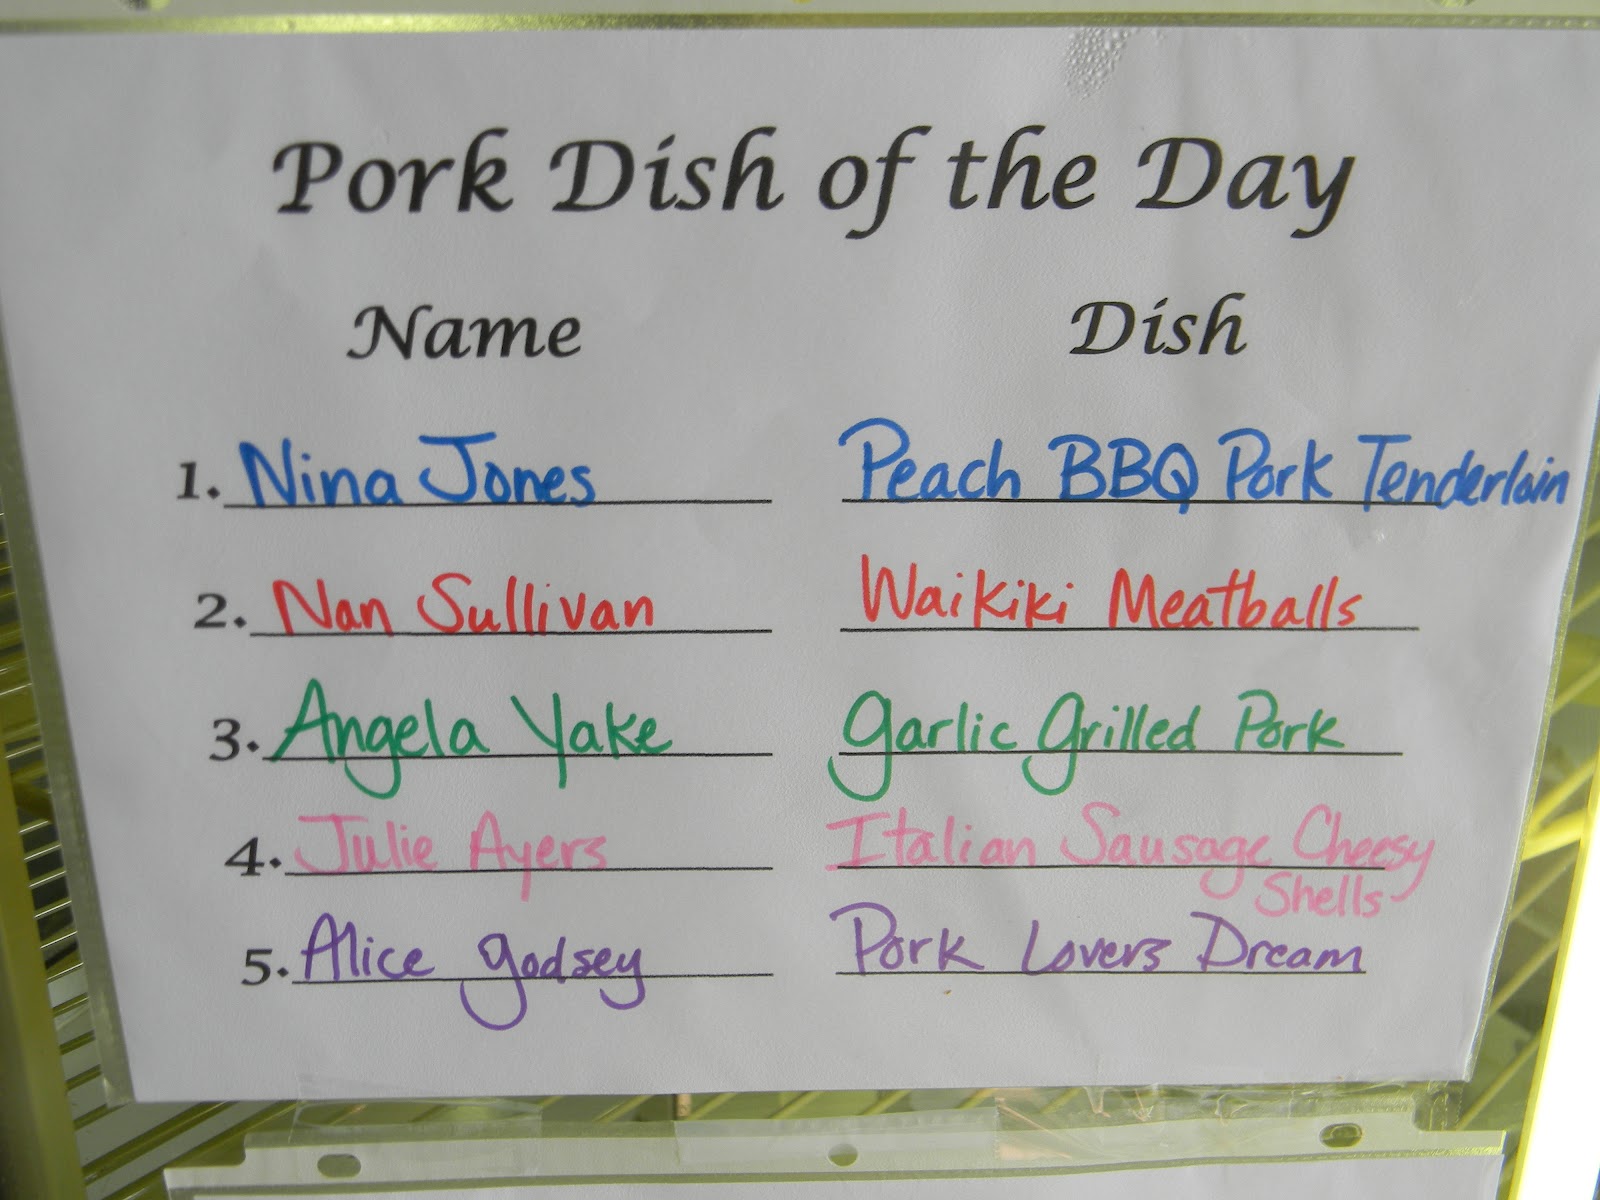 Pork Dish of the Day
Name Dish
1. Nina Jones Peach BBQ Pork Tenderloin
2. Nan Sullivan Waikiki Meatballs
3. Angela Yake Garlic Grilled Pork
4. Julie Ayers Italian Sausage Cheesy
Shells
5. Alice Godsey Pork Lovers Dream